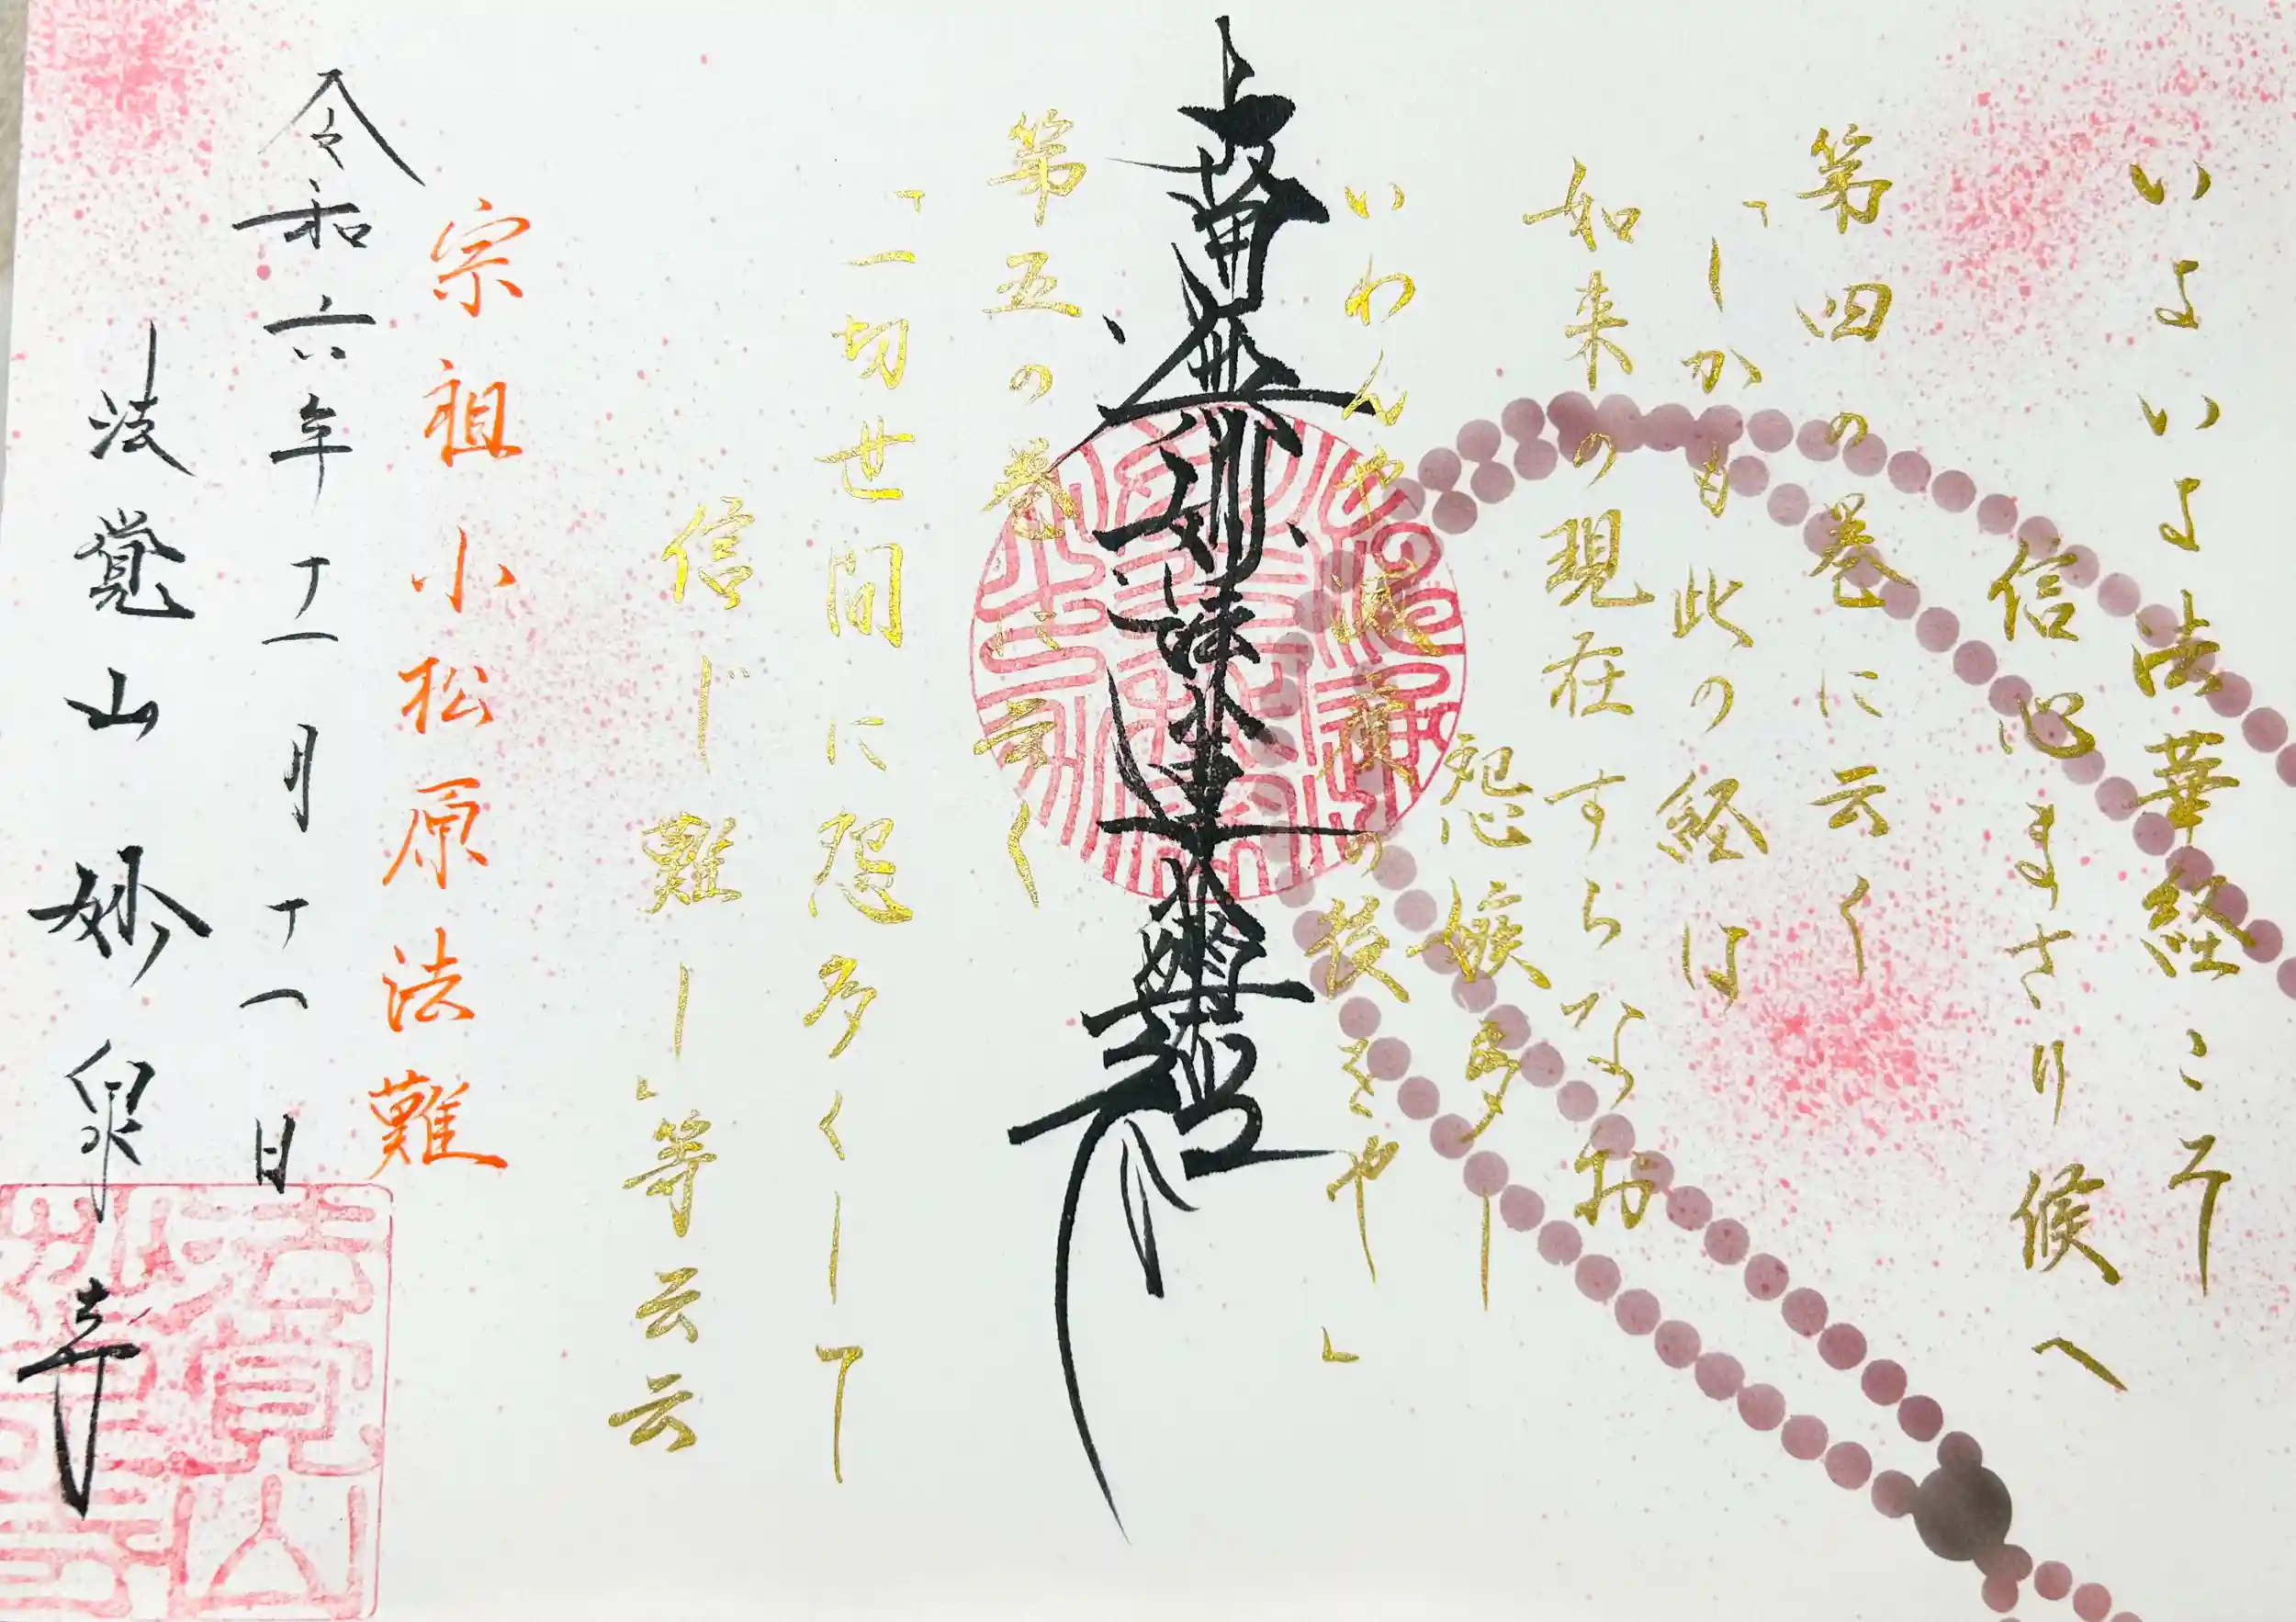 いよいよ法華経こそ
信心まさり候へ
第四の巻に云く
「しかも此の経は
如来の現在すらなお
怨嫉多し
いわんや滅度の後をや」
南無妙法蓮華経
第五の巻に云く
「一切世間に怨多くして
信じ難し」等云云
宗祖小松原法難
令和六年十一月十一日
法覚山妙泉寺